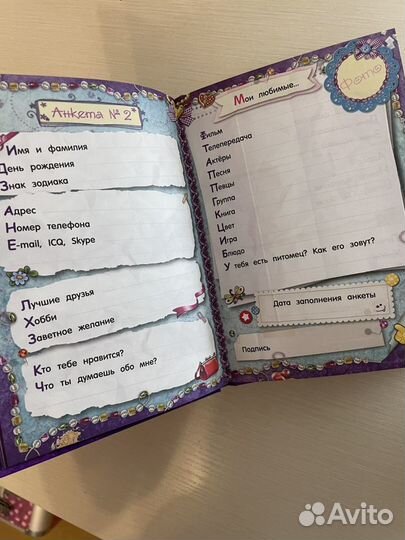 Анкета № 2
Имя и фамилия
День рождения
Знак зодиака
Адрес
Номер телефона
E-mail, ICQ, Skype
Лучшие друзья
Хобби
Заветное желание
Кто тебе нравится?
Что ты думаешь обо мне?
Мои любимые...
Фото
Фильм
Телепередача
Актёры
Песня
Певцы
Группа
Книга
Цвет
Игра
Блюдо
У тебя есть питомец? Как его зовут?
Дата заполнения анкеты
Подпись
Avito